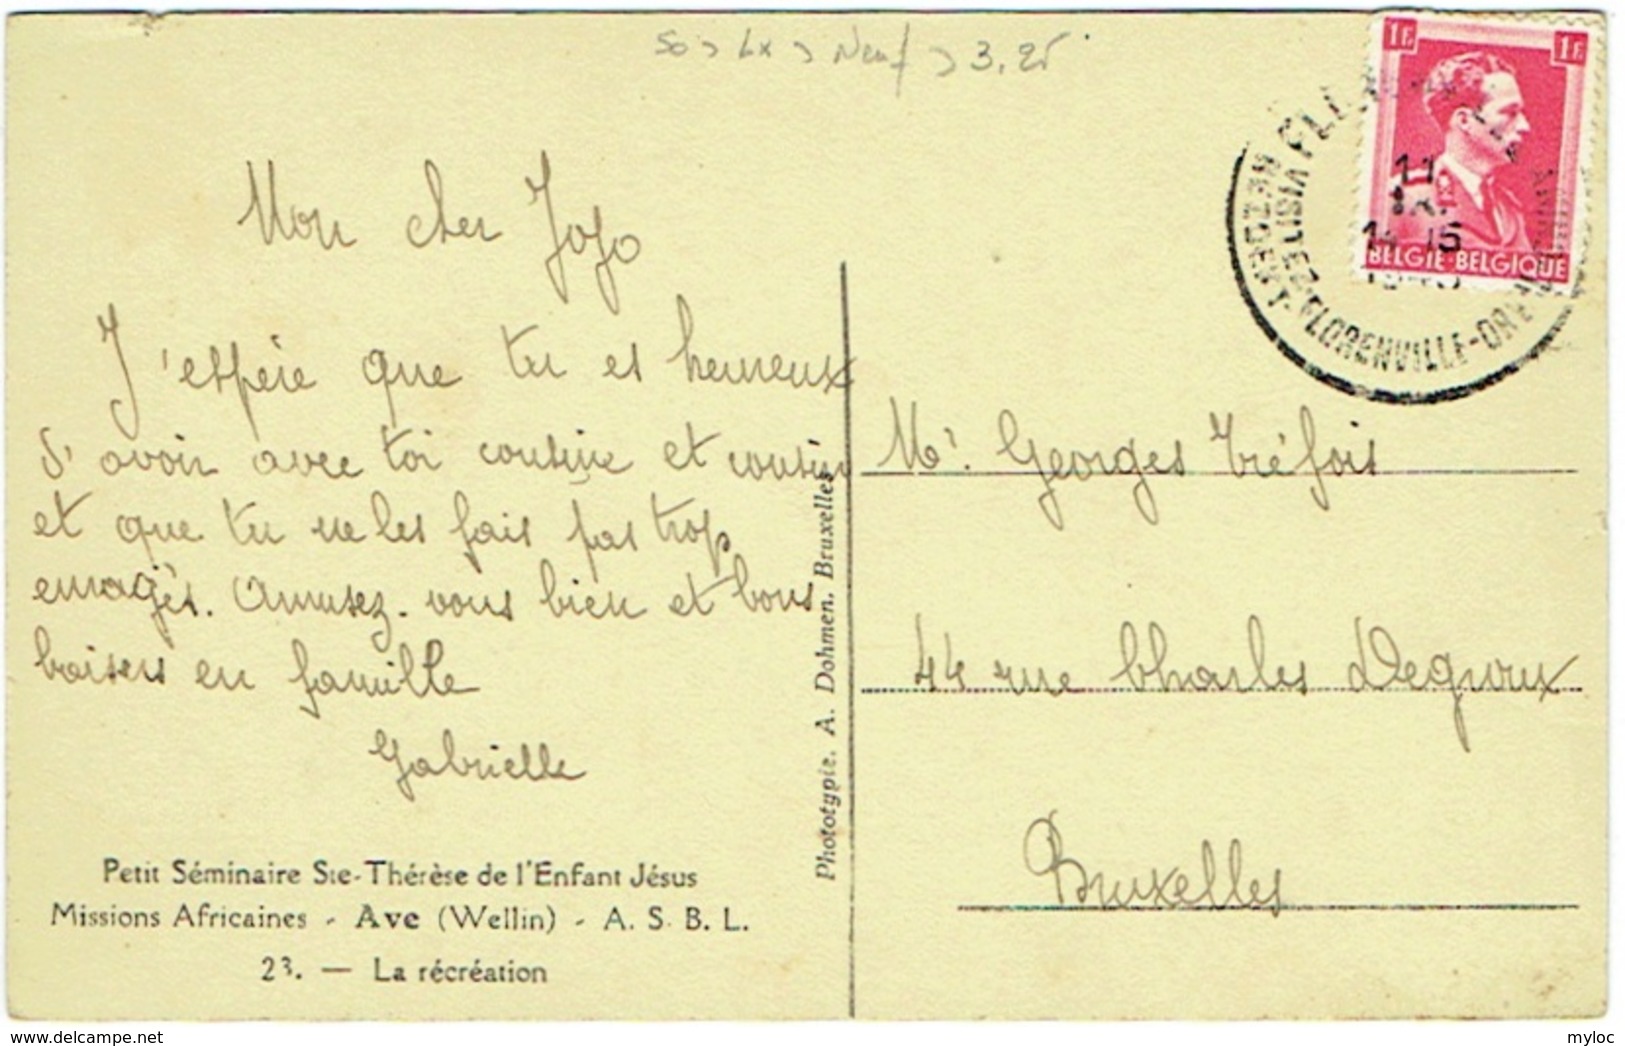 Neuf > 3,25
Mon cher Jojo
J'espère que tu es heureux
d'avoir avec toi cousine et cousin
et que tu ne les fais pas trop
enragés. Amusez-vous bien et bons
baisers en famille
Gabrielle
Petit Séminaire Ste-Thérèse de l'Enfant Jésus
Missions Africaines - Ave (Wellin) - A. S. B. L.
23. — La récréation
Phototypie. A. Dohmen. Bruxelles
1F 1F
BELGIE-BELGIQUE
11
14-15
BEZOEKT FLORENVILLE-ORVAL
VISITEZ
Mr. Georges Tréfois
44 rue Charles Degroux
Bruxelles
myloc